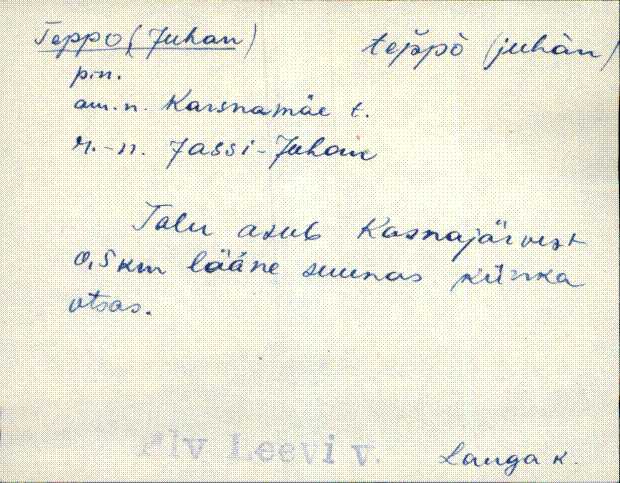 Teppo (Juhan) teppò (juhàn)
pn.
am.n. Karsnamäe t.
r.-n. Jassi-Juhan
Talu asub Kasnajärvest
0,5 km lääne suunas künka
otsas.
Leevi v.
Lauga k.